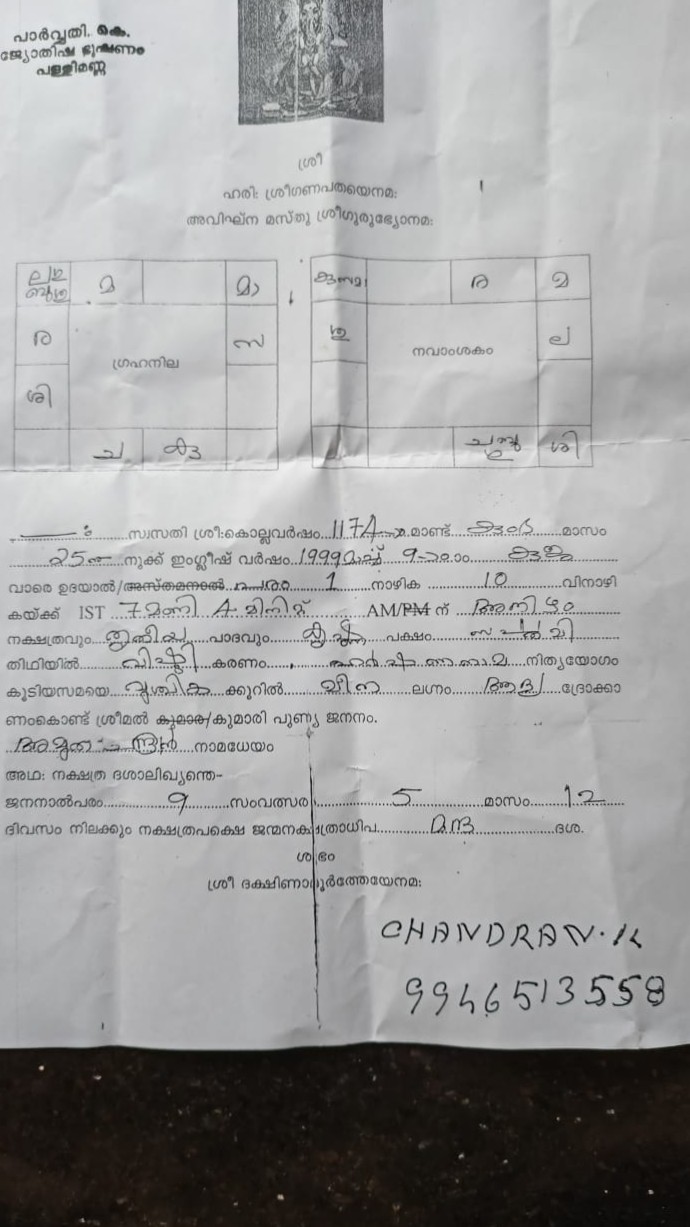 പാർവ്വതി. കെ.
ജ്യോതിഷ ഭൂഷണം
പള്ളിമണ്ണ
ശ്രീ
ഹരി: ശ്രീഗണപതയെനമ:
അവിഘ്ന മസ്തു ശ്രീഗുരുഭ്യോനമ:
മ മാ
ര സ
ഗ്രഹനില
ശി
ച
ര മ
ല
നവാംശകം
ശി
സ്വസതി ശ്രീ:കൊല്ലവർഷം 1174 മാണ്ട് കുംഭ മാസം
25 നുക്ക് ഇംഗ്ലീഷ് വർഷം 1999
വാരെ ഉദയാൽ/അസ്തമനാൽ 1 നാഴിക 10 വിനാഴി
കയ്ക്ക് IST 7 മണി 4 മിനിറ്റ് AM/PM ന് അനിഴം
നക്ഷത്രവും തൃതീയ പാദവും കൃഷ്ണ പക്ഷം സപ്തമി
തിഥിയിൽ വിഷ്ടി കരണം നിത്യയോഗം
കൂടിയസമയെ വൃശ്ചിക ക്കൂറിൽ മീന ലഗ്നം ആദ്യ ദ്രോക്കാ
ണംകൊണ്ട് ശ്രീമൽ കുമാര/കുമാരി പുണ്യ ജനനം.
നാമധേയം
അഥ: നക്ഷത്ര ദശാലിഖ്യന്തെ-
ജനനാൽപരം 9 സംവത്സര 5 മാസം 12
ദിവസം നിലക്കും നക്ഷത്രപക്ഷെ ജന്മനക്ഷത്രാധിപ മന്ദ ദശ.
ശുഭം
ശ്രീ ദക്ഷിണാമൂർത്തേയേനമ:
CHANDRAN.K
9946513558